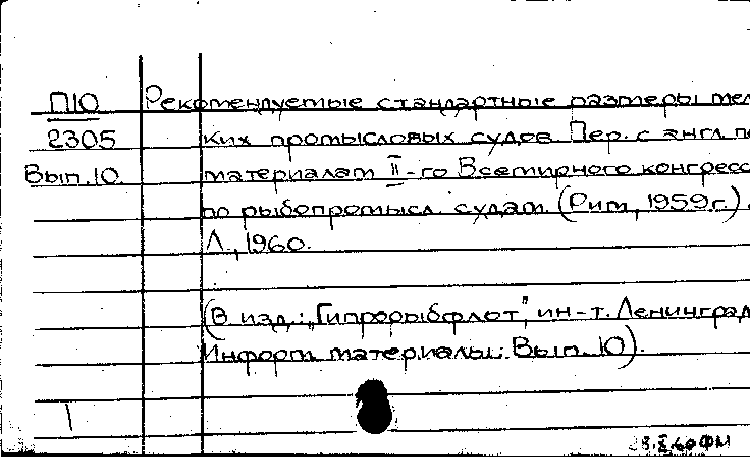 П10 Рекомендуемые стандартные размеры мел
2305 ких промысловых судов Пер. с англ. по
Вып. 10. материалам II-го Всемирного конгресс
по рыбопромысл. судам (Рим, 1959 г.).
Л., 1960.
(В изд.: „Гипрорыбфлот", ин-т. Ленинград
Информ. материалы: Вып. 10).
1
X.60 ФМ